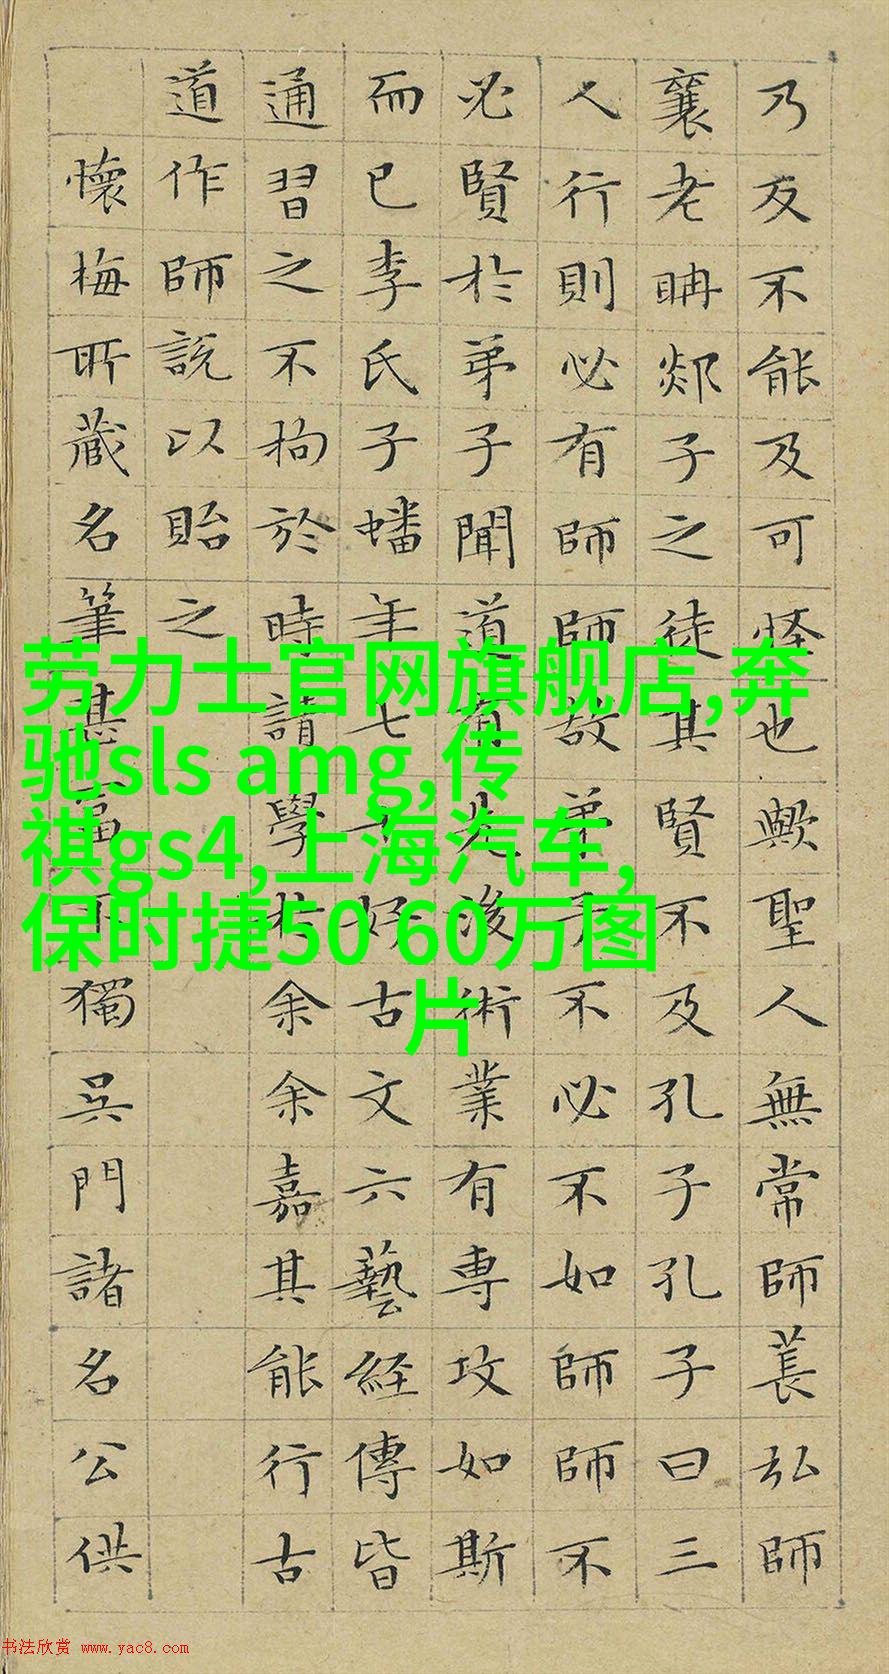 乃反不能及可怪也歟聖人無常師萇弘師
襄老聃郯子之徒其賢不及孔子孔子曰三
人行則必有師師故弟子不必不如師師不
必賢於弟子聞道有先後術業有專攻如斯
而已李氏子蟠年七十好古文六藝経傳皆
通習之不拘於時請學於余余嘉其能行古
道作師説以貽之
懷梅所藏名筆甚富不獨吳門諸名公供
劳力士官网旗舰店,奔
驰sls amg,传
祺gs4,上海汽车,
保时捷50 60万图
片
书法欣赏 www.yac8.com